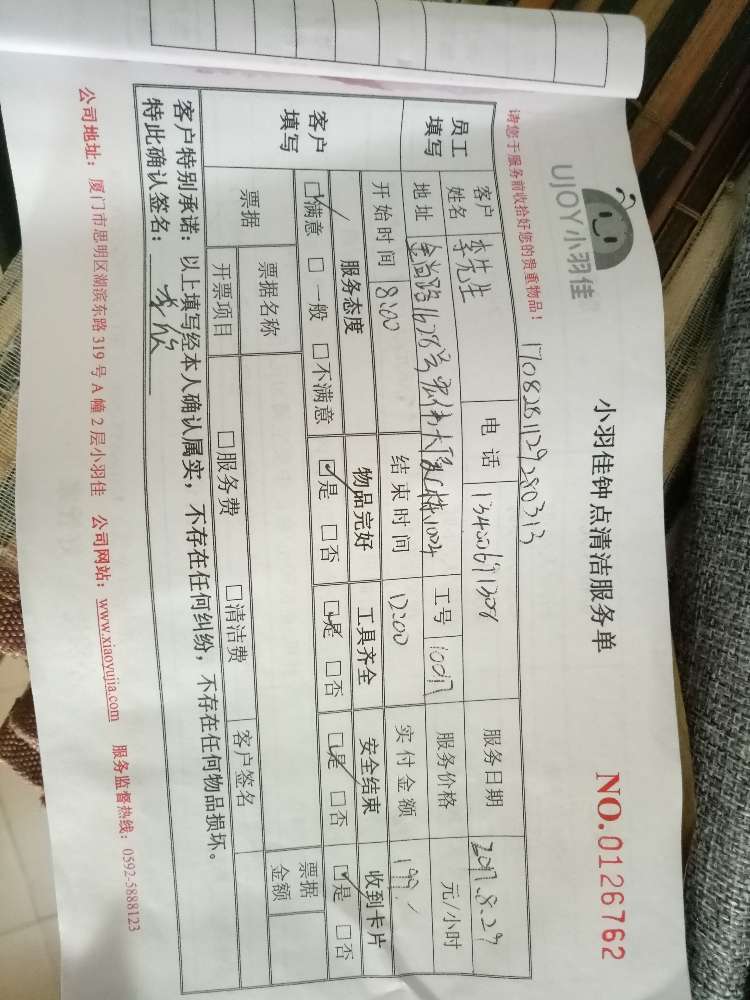 UJOY小羽佳
小羽佳钟点清洁服务单
NO.0126762
请您于服务前收拾好您的贵重物品！
员工填写
客户姓名 李先生 电话 服务日期 2017.8.29
地址 工号 服务价格 元/小时
开始时间 8:00 结束时间 12:00 实付金额 199
客户填写
服务态度 物品完好 工具齐全 安全结束 收到卡片
☑满意 □一般 □不满意 ☑是 □否 ☑是 □否 ☑是 □否 ☑是 □否
票据 票据名称 票据金额
开票项目 □服务费 □清洁费 客户签名
客户特别承诺：以上填写经本人确认属实，不存在任何纠纷，不存在任何物品损坏。
特此确认签名：
公司地址：厦门市思明区湖滨东路319号A幢2层小羽佳 公司网站：www.xiaoyujia.com 服务监督热线：0592-5888123